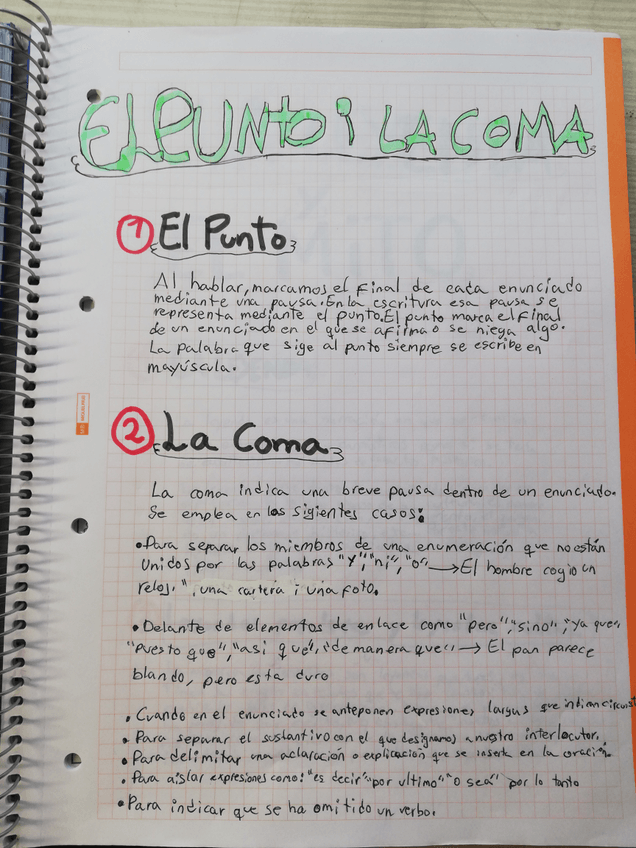 EL PUNTO i LA COMA
1 El Punto
Al hablar, marcamos el final de cada enunciado
mediante una pausa. En la escritura esa pausa se
representa mediante el punto. El punto marca el final
de un enunciado en el que se afirma o se niega algo.
La palabra que sige al punto siempre se escribe en
mayúscula.
2 La Coma
La coma indica una breve pausa dentro de un enunciado.
Se emplea en los sigientes casos:
•Para separar los miembros de una enumeración que no están
unidos por las palabras "Y", "ni", "o" → El hombre cogio un
reloj, ", una cartera i una foto.
•Delante de elementos de enlace como "pero", "sino", "ya que",
"puesto que", "asi que", "de manera que" → El pan parece
blando, pero esta duro
•Cuando en el enunciado se anteponen expresiones largas que indican
•Para separar el sustantivo con el que designamos a nuestro interlocutor.
•Para delimitar una aclaración o explicación que se inserta en la oración.
•Para aislar expresiones como: "es decir" "por ultimo" "o sea" por lo tanto
•Para indicar que se ha omitido un verbo.